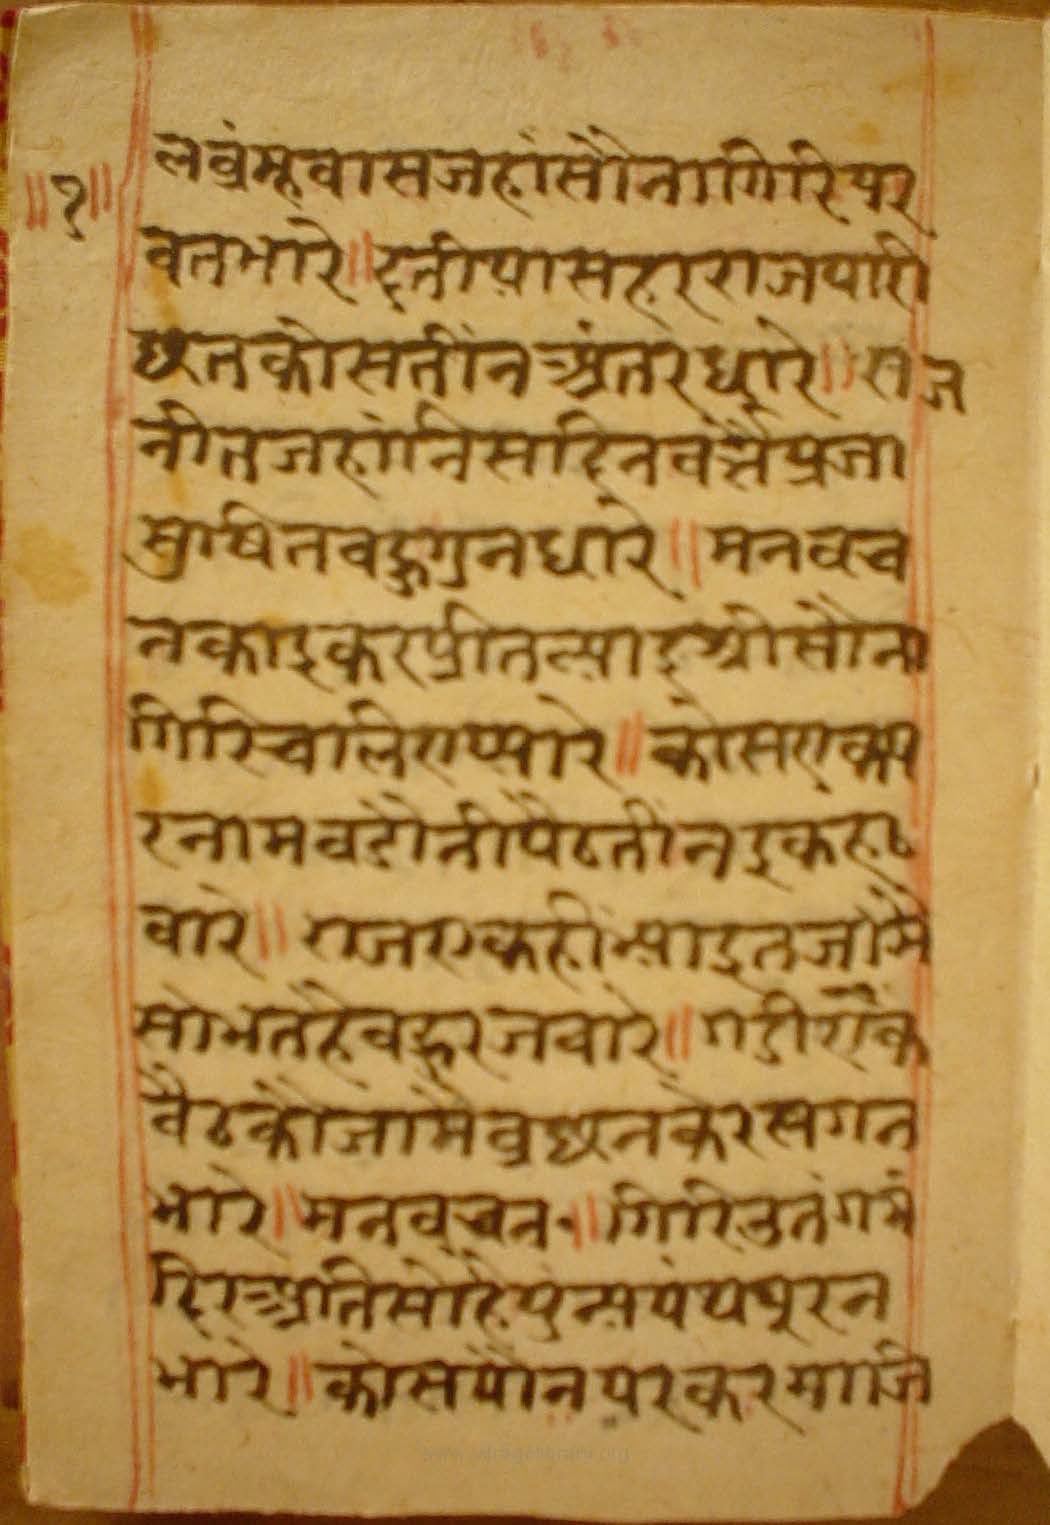 ॥१॥
लब्रंम्हवासजहांसौनागिरिपर
वतभारे॥दतीयासहरराजपारी
छतकोसतींनअंतरेधारे॥राज
नीतजहांनिसदिनवर्त्तैप्रजा
सुषितवहुगुनधारे॥मनवच
नकाइकरप्रीतल्याइश्रीसौना
गिरिचालिएप्यारे॥कोसएकप
रनामवडौनीपैठतींनइकहाट
वारे॥राजएकहींल्याइतजांमै
सोभतहैवहुरजवारे॥गडीएकै
वैठकौजामैवुछनकेरसगन
भारे॥मनवचन॰॥गिरिउतंगमं
दिरअतिसोहैपुंन्यपंथपूरन
भारे॥कोसपौंनपरकरमाजि